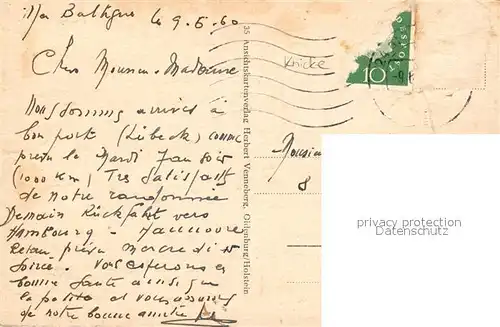 le 9.6.60
Cher Monsieur Madame
Nous sommes arrivés à
bon port (Lübeck) comme
prévu le Mardi
(1000 Km) Très Satisfait
de notre randonnée
Demain Rückfahrt vers
Hambourg - Hannovre
prévu Mercredi
Soirée. Vous espérons en
bonne Santé ainsi que
la petite et vous assurons
de notre bonne amitié
35 Ansichtskartenverlag Herbert Venneberg, Oldenburg/Holstein
Knicke
10
Monsieur
8
privacy protection
Oldthing.de